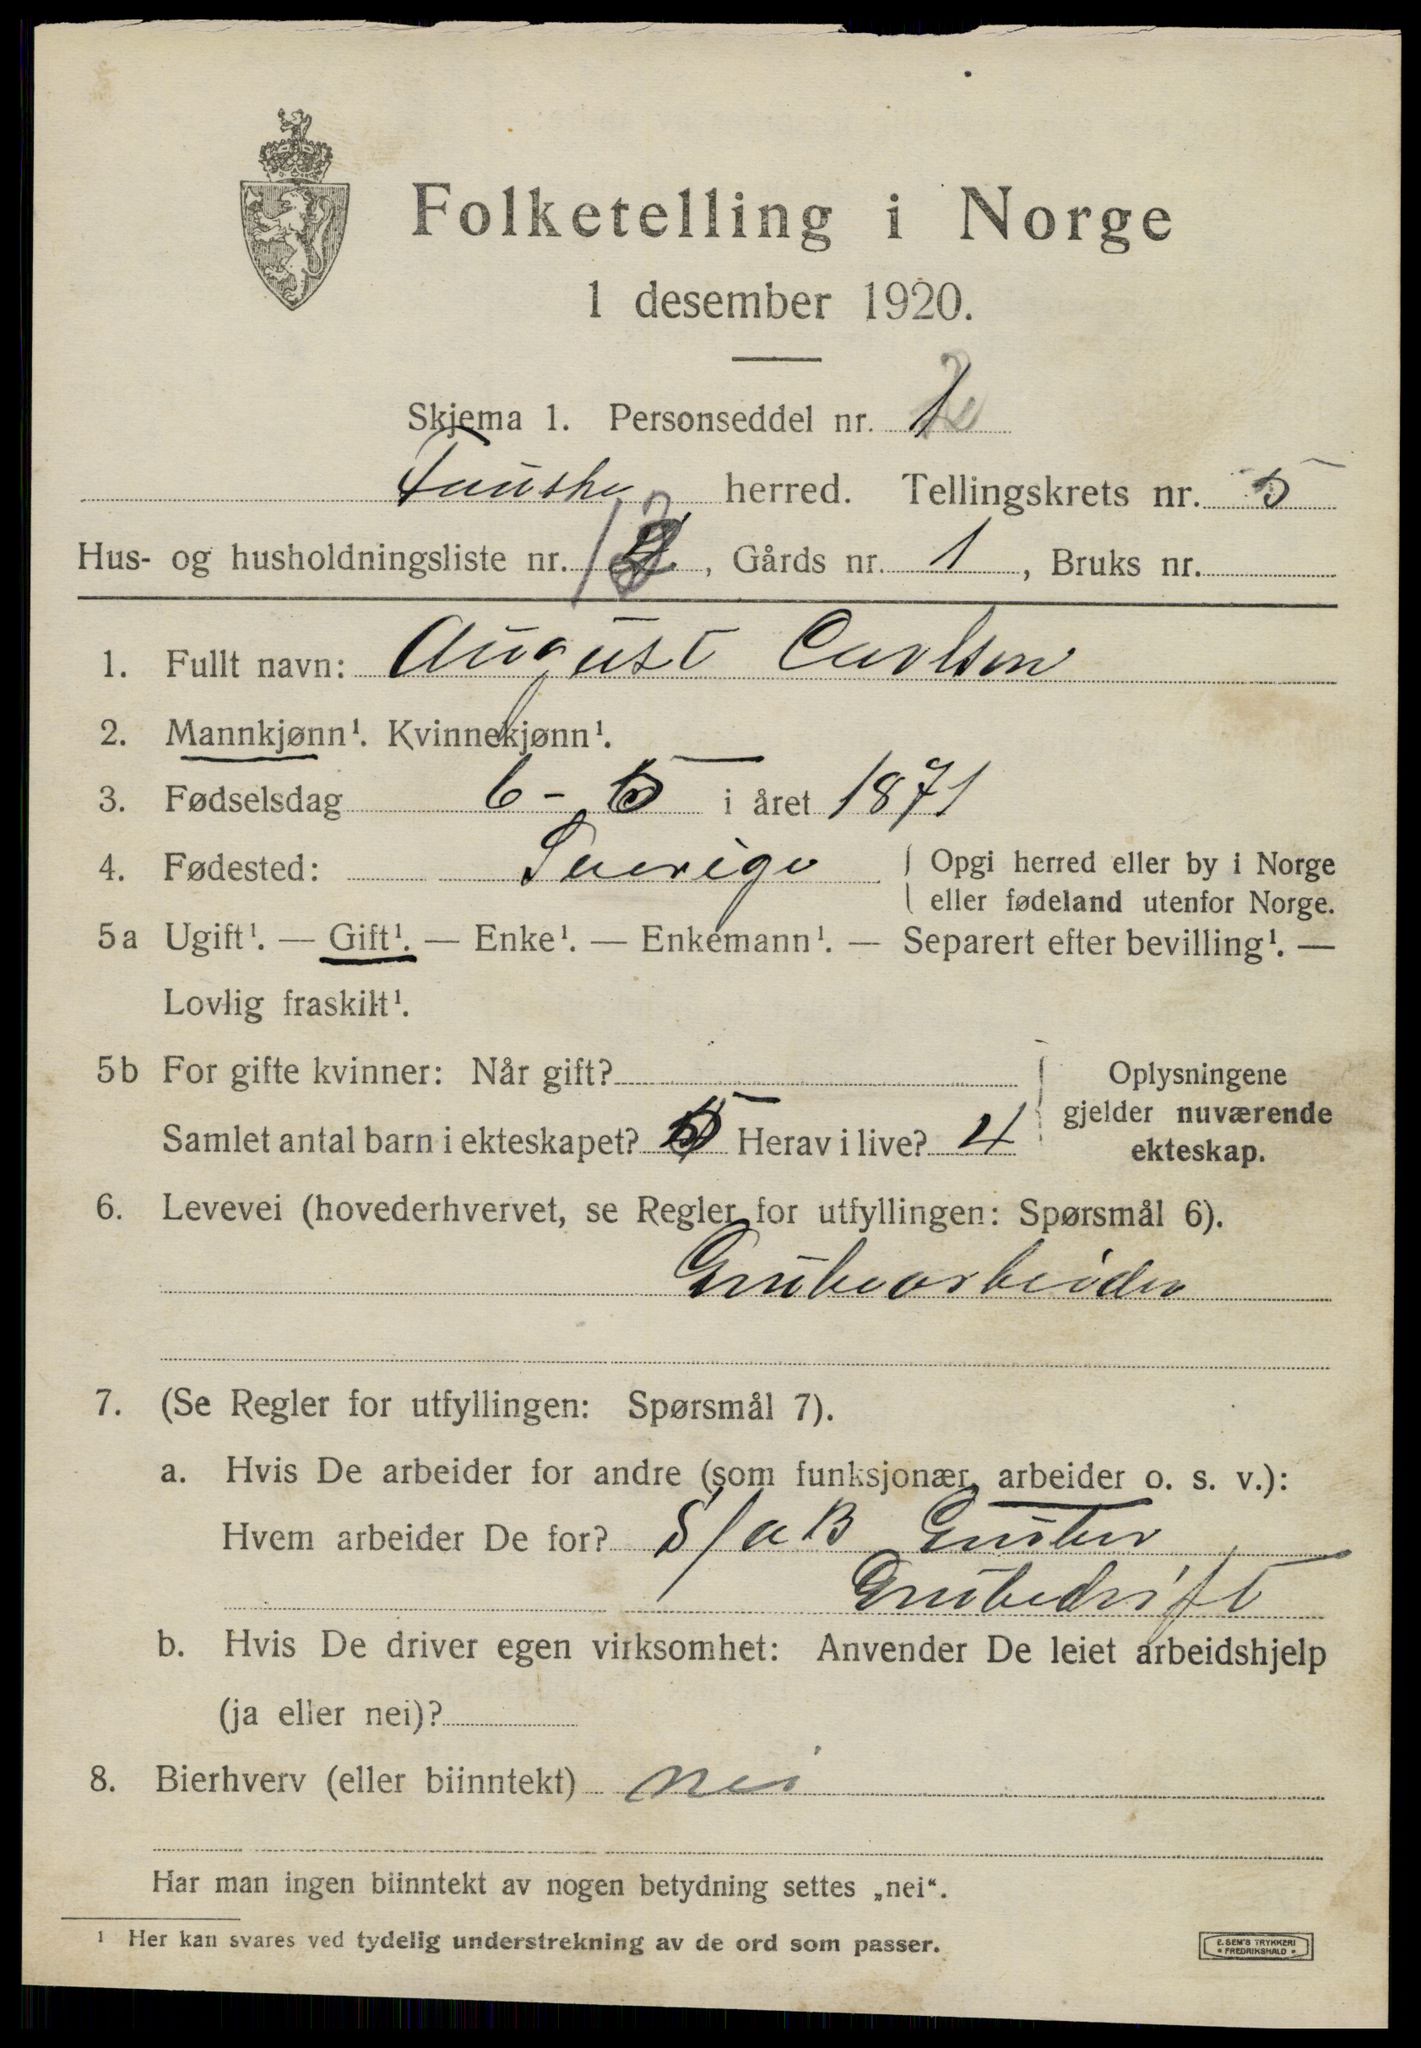 Folketelling i Norge
1 desember 1920.
Skjema 1. Personseddel nr. 1
Fauske herred. Tellingskrets nr. 5
Hus- og husholdningsliste nr. , Gårds nr. 1 , Bruks nr.
1. Fullt navn: August Carlsen
2. Mannkjønn¹. Kvinnekjønn¹.
3. Fødselsdag 6 - 5 i året 1871
4. Fødested: Sverige { Opgi herred eller by i Norge
eller fødeland utenfor Norge.
5a Ugift¹. — Gift¹. — Enke¹. — Enkemann¹. — Separert efter bevilling¹. —
Lovlig fraskilt¹.
5b For gifte kvinner: Når gift? Oplysningene
gjelder nuværende
Samlet antal barn i ekteskapet? 5 Herav i live? 4
ekteskap.
6. Levevei (hovederhvervet, se Regler for utfyllingen: Spørsmål 6).
Grubearbeider
7. (Se Regler for utfyllingen: Spørsmål 7).
a. Hvis De arbeider for andre (som funksjonær, arbeider o. s. v.):
Hvem arbeider De for? S/aB Gruber
Grubedrift
b. Hvis De driver egen virksomhet: Anvender De leiet arbeidshjelp
(ja eller nei)?
8. Bierhverv (eller biinntekt) nei
Har man ingen biinntekt av nogen betydning settes „nei“.
¹ Her kan svares ved tydelig understrekning av de ord som passer.
E. SEM'S TRYKKERI
• FREDRIKSHALD •